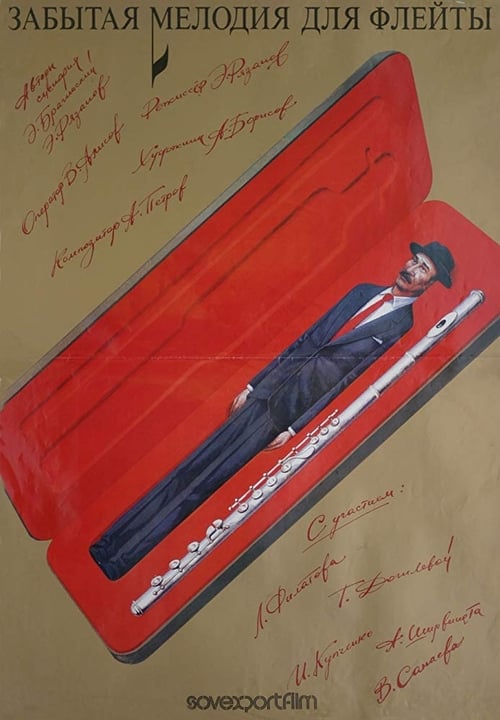 ЗАБЫТАЯ МЕЛОДИЯ ДЛЯ ФЛЕЙТЫ
Авторы
сценария!
Э. Брагинский
Э. Рязанов
Режиссёр Э. Рязанов
Оператор В. Алисов
Художник А. Борисов
Композитор А. Петров
С участием:
Л. Филатова
Т. Догилевой!
И. Купченко
А. Ширвиндта
В. Санаева
sovexportfilm